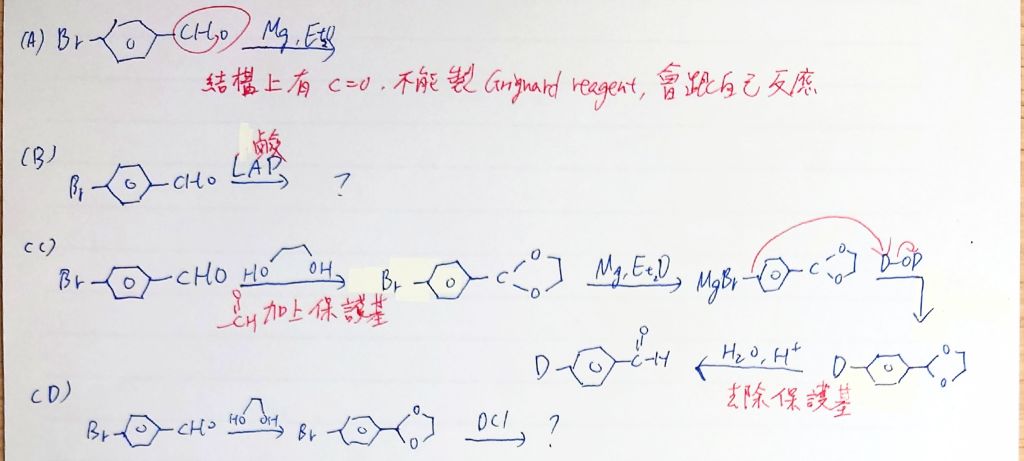 (A) Br CHO Mg, Et₂O
結構上有 C=O, 不能製 Grignard reagent, 會跟自己反應
(B) 鹵烷
Br CHO LAD ?
(C) Br CHO HO OH Br C O O Mg, Et₂O MgBr C O O D-OD
O CH 加上保護基
D C-H O H₂O, H⁺ D O O
去除保護基
(D)
Br CHO HO OH Br O O DCl ?